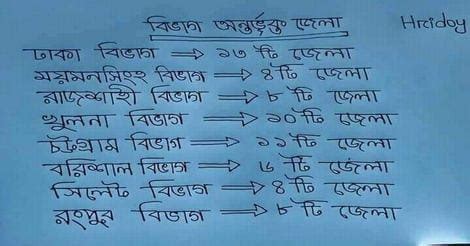 বিভাগ অন্তর্ভুক্ত জেলা Hridoy
ঢাকা বিভাগ ⇒ ১৩ টি জেলা
ময়মনসিংহ বিভাগ ⇒ ৪ টি জেলা
রাজশাহী বিভাগ ⇒ ৮ টি জেলা
খুলনা বিভাগ ⇒ ১০ টি জেলা
চট্টগ্রাম বিভাগ ⇒ ১১ টি জেলা
বরিশাল বিভাগ ⇒ ৬ টি জেলা
সিলেট বিভাগ ⇒ ৪ টি জেলা
রংপুর বিভাগ ⇒ ৮ টি জেলা